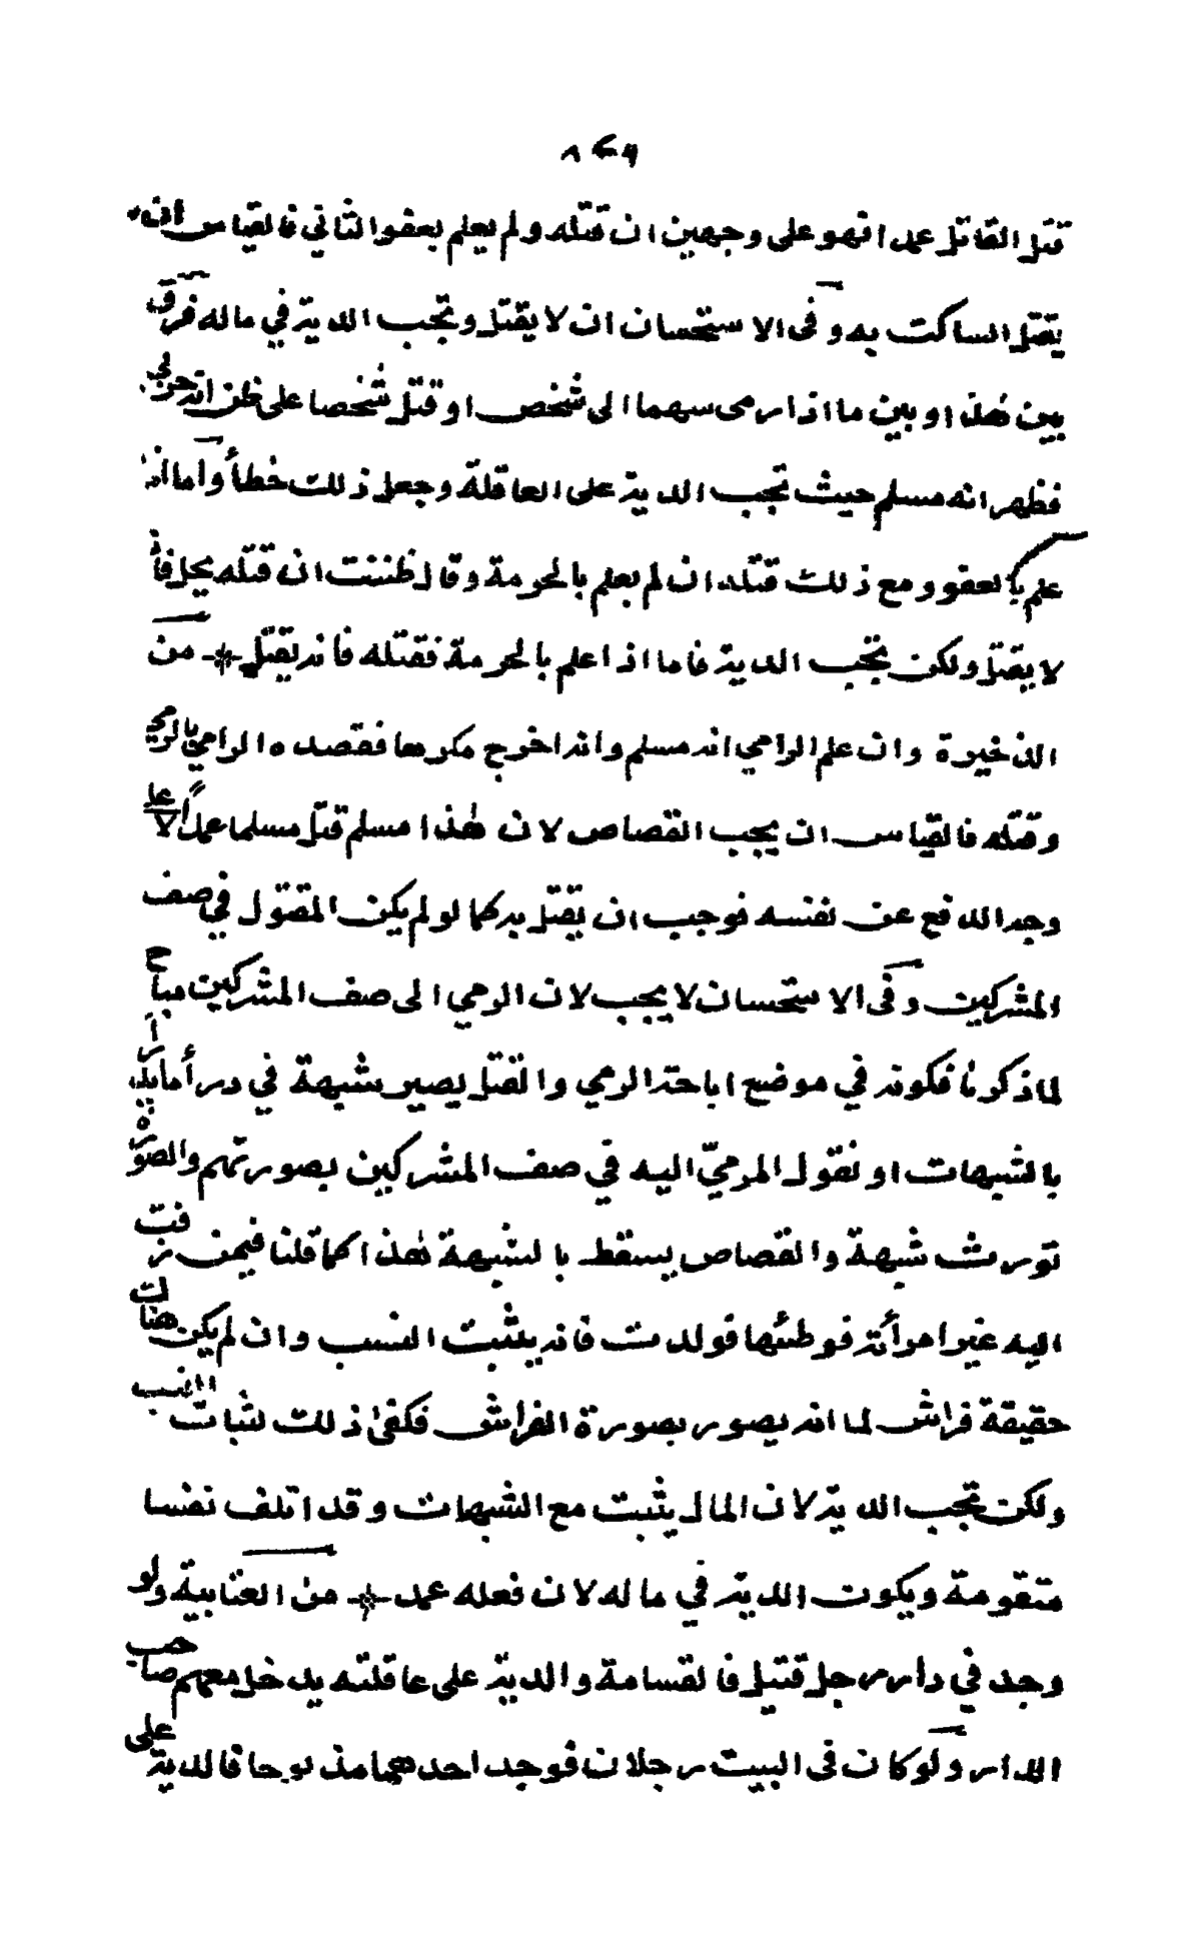 ٨٤٩
قتل القاتل عمدا فهو على وجهين ان قتله ولم يعلم بعفو الثاني فالقياس ان
يقتل الساكت به وفى الاستحسان ان لا يقتل وتجب الدية في ماله فرق
بين هذا وبين ما اذا رمى سهما الى شخص او قتل شخصا على ظن انه حربي
فظهر انه مسلم حيث تجب الدية على العاقلة وجعل ذلك خطأ وأما اذا
علم بالعفو ومع ذلك قتله ان لم يعلم بالحرمة وقال ظننت ان قتله يحل فانه
لا يقتل ولكن تجب الدية فاما اذا علم بالحرمة فقتله فانه يقتل * من
الذخيرة وان علم الرامي انه مسلم وانه اخرج مكرها فقصده الرامي بالرمي
وقتله فالقياس ان يجب القصاص لان هٰذا مسلم قتل مسلما عمدًا لا على
وجه الدفع عن نفسه فوجب ان يقتل به كما لو لم يكن المقتول في صف
المشركين وفى الاستحسان لا يجب لان الرمي الى صف المشركين مباح
لما ذكرنا فكونه في موضع اباحة الرمي والقتل يصير شبهة في درأ ما يدرأ
بالشبهات او نقول المرميّ اليه في صف المشركين بصورتهم والصورة
تورث شبهة والقصاص يسقط بالشبهة هٰذا كما قلنا فيمن زفت
اليه غير امرأته فوطئها فولدت فانه يثبت النسب وان لم يكن هناك
حقيقة فراش لما انه يصور بصورة الفراش فكفىٰ ذلك لثبات النسب
ولكن تجب الدية لان المال يثبت مع الشبهات وقد اتلف نفسا
متقومة ويكون الدية في ماله لان فعله عمد * من العتابية ولو
وجد في دار رجل قتيل فالقسامة والدية على عاقلته يدخل معهم صاحب
الدار ولو كان فى البيت رجلان فوجد احدهما مذبوحا فالدية على